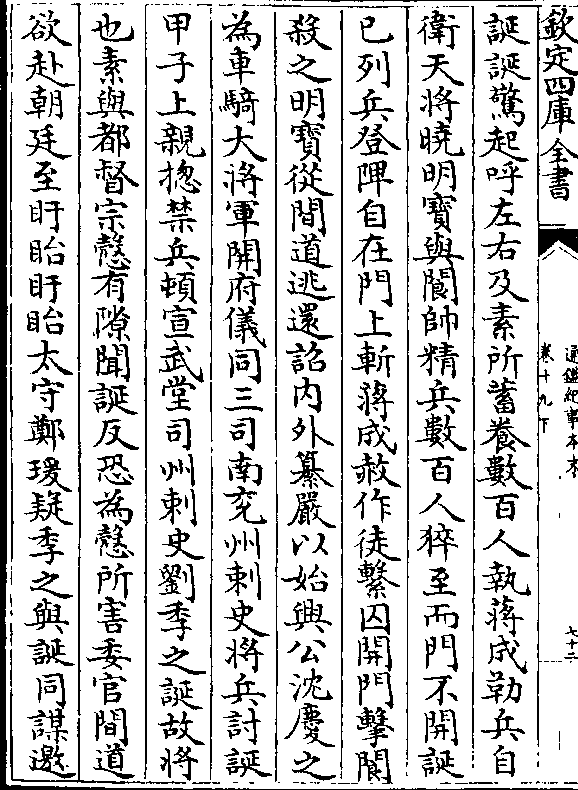 欽定四庫全書
通鑑紀事本末
卷十九下
七十二
誕誕驚起呼左右及素所蓄養數百人執蔣成勒兵自
衛天將曉明寶與閬帥精兵數百人猝至而門不開誕
已列兵登陴自在門上斬蔣成赦作徒繫囚開門擊閬
殺之明寶從間道逃還詔内外纂嚴以始興公沈慶之
為車騎大將軍開府儀同三司南兖州刺史將兵討誕
甲子上親揔禁兵頓宣武堂司州刺史劉季之誕故將
也素與都督宗慤有隙聞誕反恐為慤所害委官間道
欲赴朝廷至盱眙盱眙太守鄭瑗疑季之與誕同謀邀